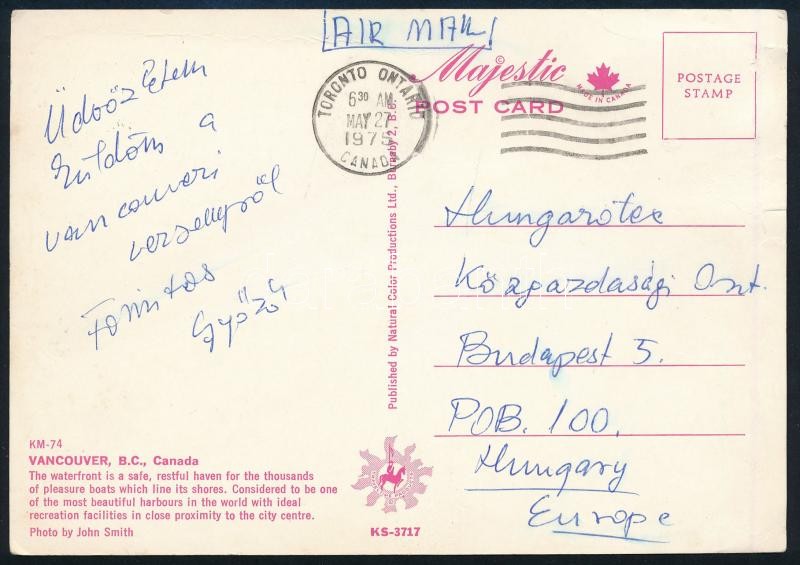 AIR MAIL
Majestic
MADE IN CANADA
POST CARD
POSTAGE
STAMP
TORONTO ONTARIO
6 30 AM
MAY 27
1975
CANADA
Üdvözletem
küldöm a
vancouveri
versenyről
Forintos
Győző
Hungarotex
Közgazdasági Oszt.
Budapest 5.
POB. 100.
Hungary
Europe
Published by Natural Color Productions Ltd., Burnaby 2, B.C.
KM-74
VANCOUVER, B.C., Canada
The waterfront is a safe, restful haven for the thousands
of pleasure boats which line its shores. Considered to be one
of the most beautiful harbours in the world with ideal
recreation facilities in close proximity to the city centre.
Photo by John Smith
KS-3717